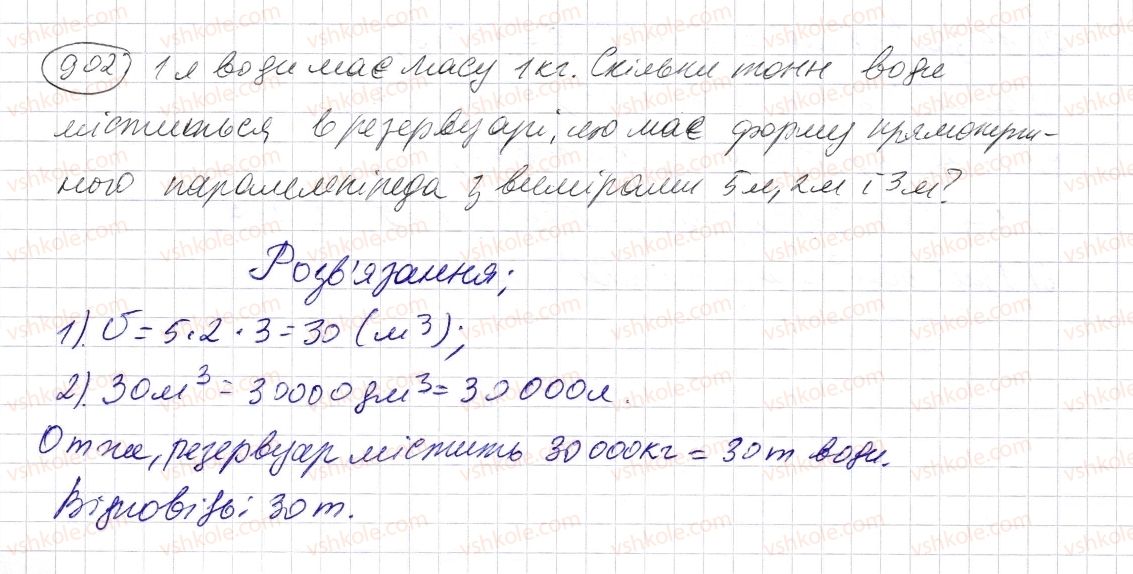 902) 1 л води має масу 1 кг. Скільки тонн води
міститься в резервуарі, що має форму прямокут-
ного паралелепіпеда з вимірами 5м, 2м і 3м?
Розв'язання;
1). V = 5·2·3 = 30 (м³);
2). 30м³ = 30000 дм³ = 30 000л.
Отже, резервуар містить 30 000кг = 30т води.
Відповідь: 30т.